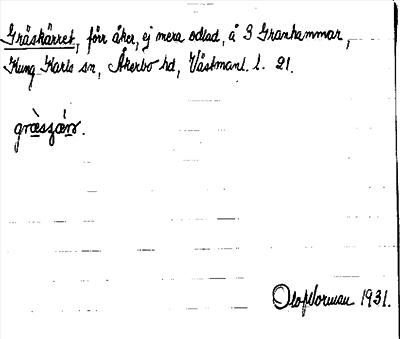 Gräskärret, förr åker, ej mera odlad, å 3 Granhammar,
Kung Karls sn, Åkerbo hd, Västmanl. l. 21.
Olof Norman 1931.